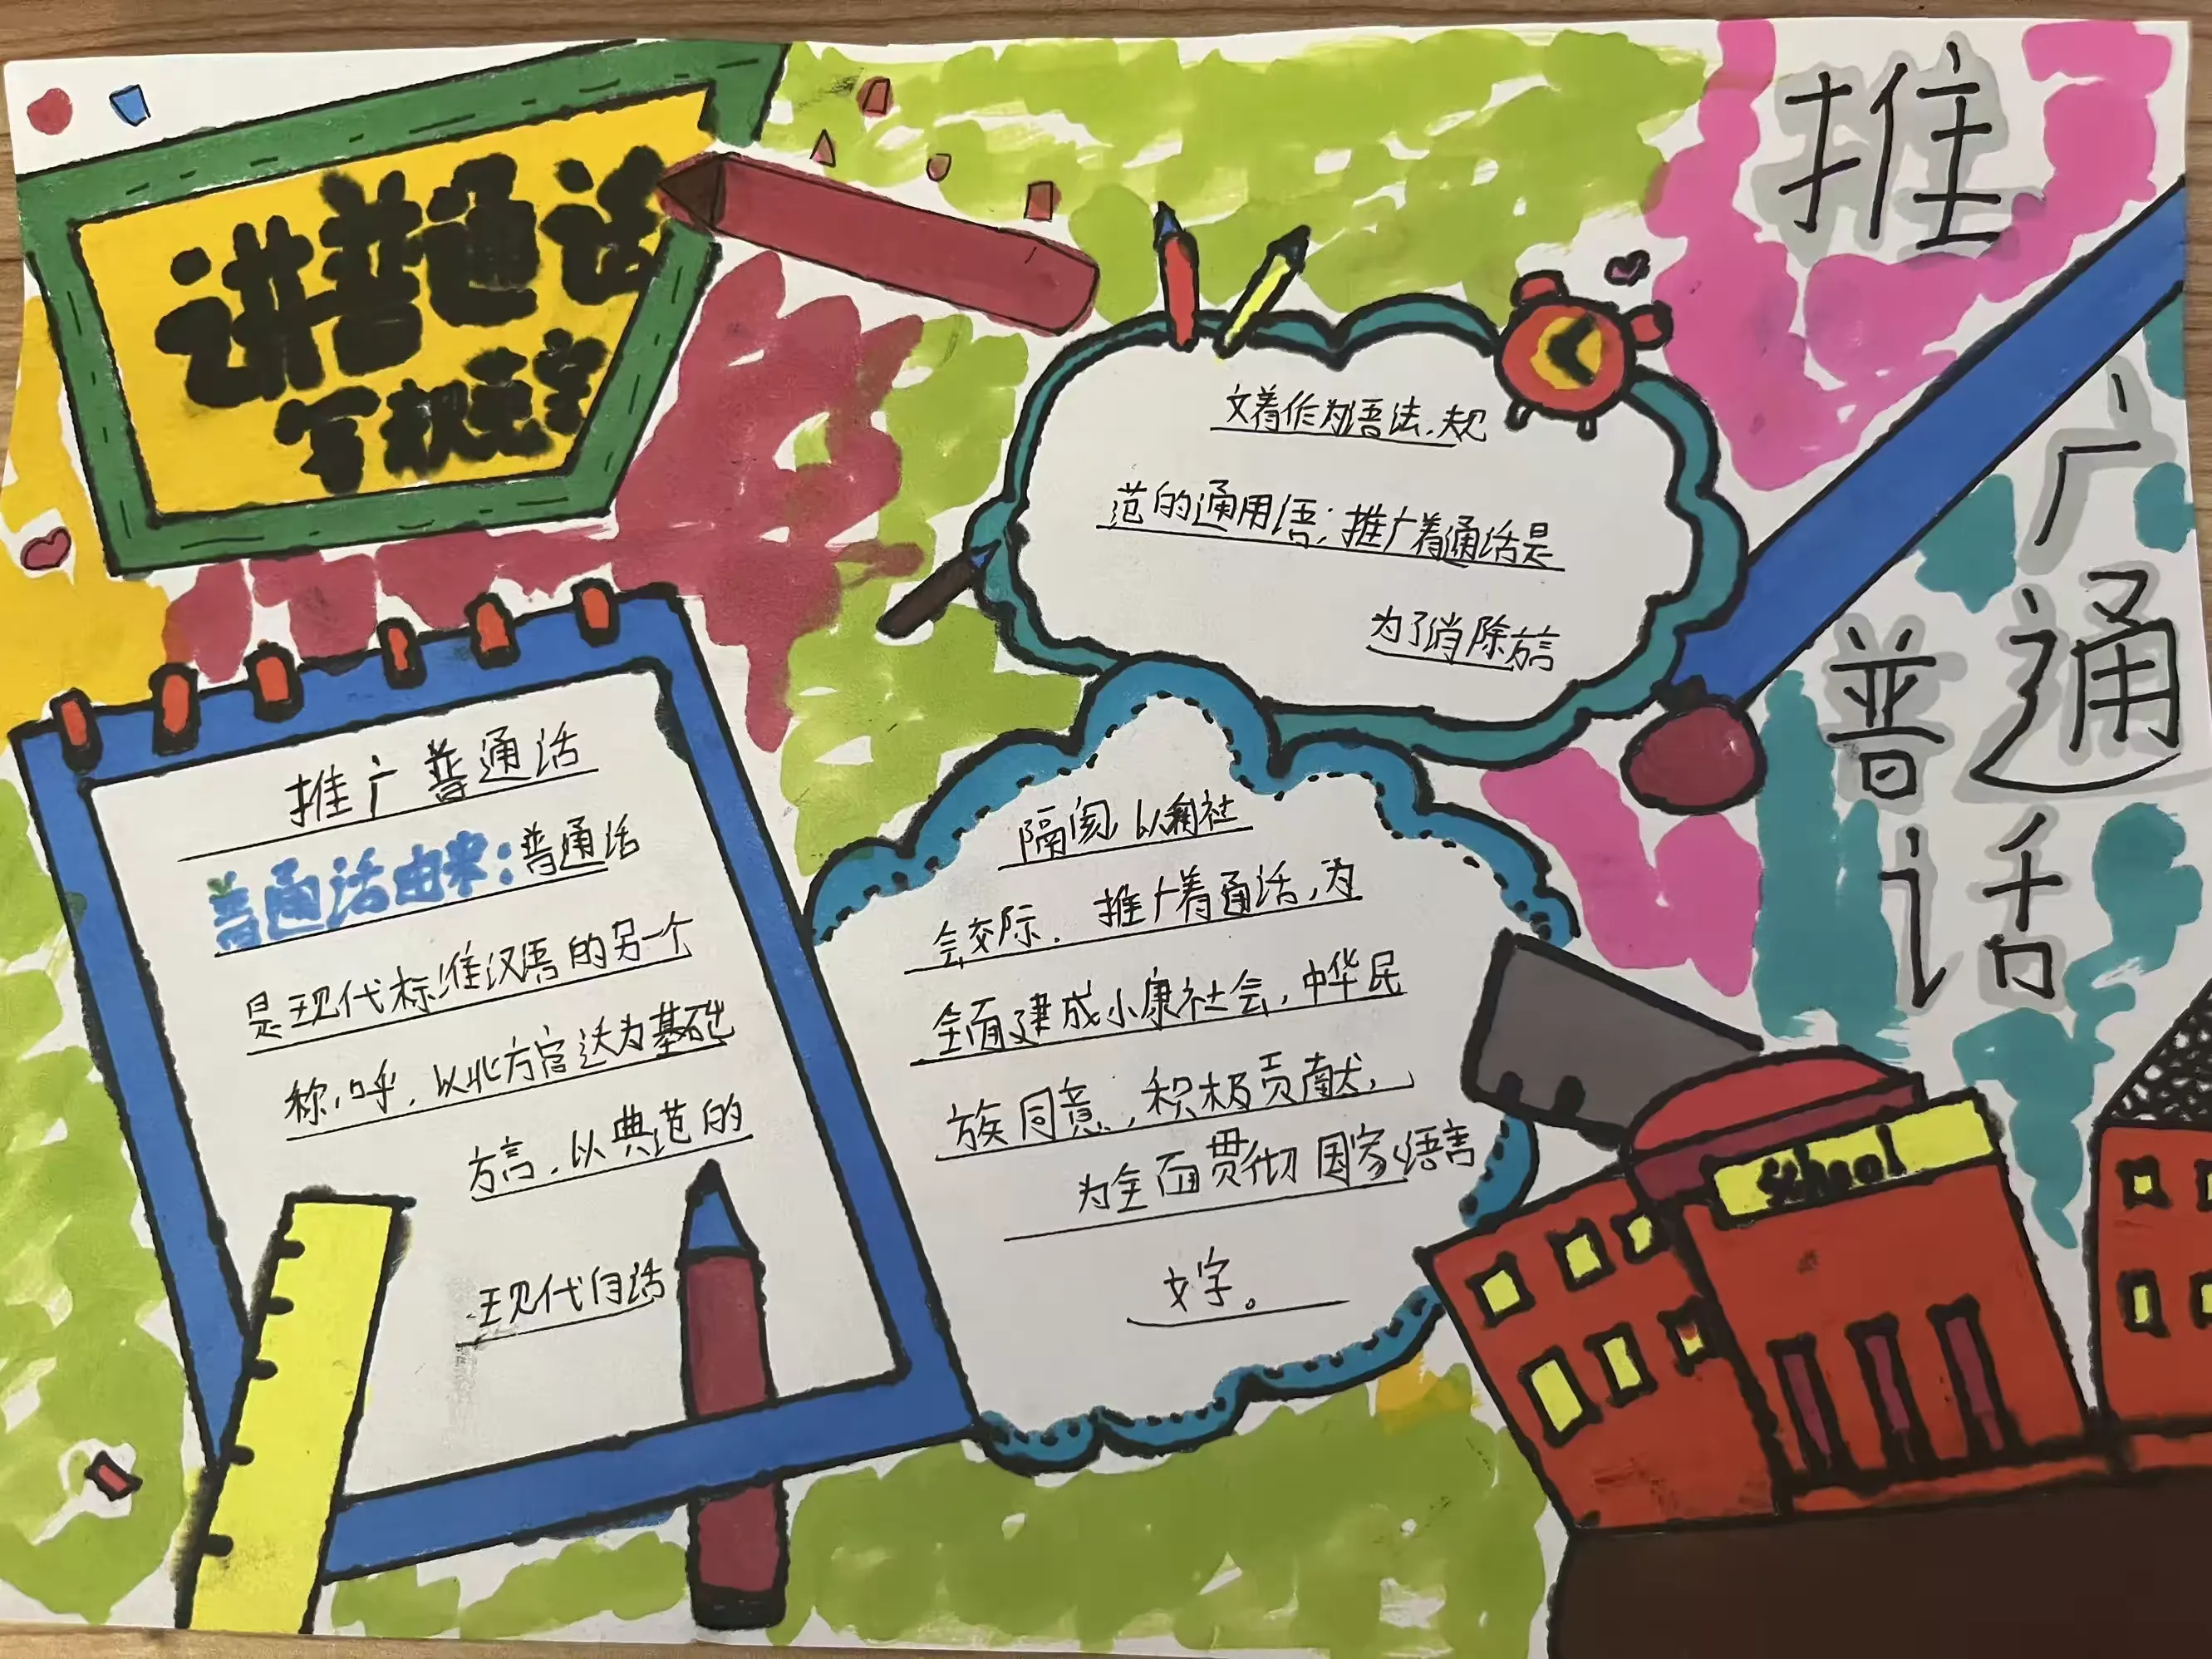 讲普通话
写规范字
推广普通话
推广普通话
普通话由来：普通话
是现代标准汉语的另一个
称呼，以北方官达为基础
方言，以典范的
现代白话
文着作为语法，规
范的通用语；推广着通话是
为了消除方言
隔阂，以利社
会交际．推广着通话，为
全面建成小康社会，中华民
族同意，积极贡献，
为全面贯彻国家语言
文字。
School